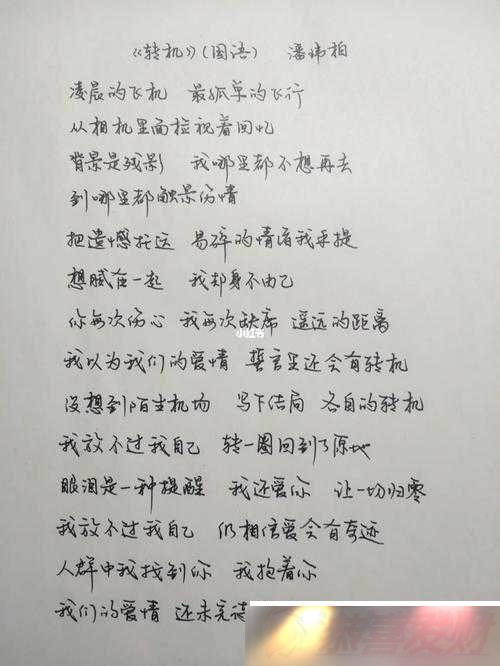 《转机》(国语) 潘玮柏
凌晨的飞机 最孤单的飞行
从相机里面检视着回忆
背景是残影 我哪里都不想再去
到哪里都触景伤情
把遗憾托运 易碎的情绪我手提
想腻在一起 我却身不由己
你每次伤心 我每次缺席 遥远的距离
小红书
我以为我们的爱情 誓言里还会有转机
没想到陌生机场 写下结局 各自的转机
我放不过我自己 转一圈回到了原地
眼泪是一种提醒 我还爱你 让一切归零
我放不过我自己 仍相信爱会有奇迹
人群中我找到你 我抱着你
我们的爱情 还未完待